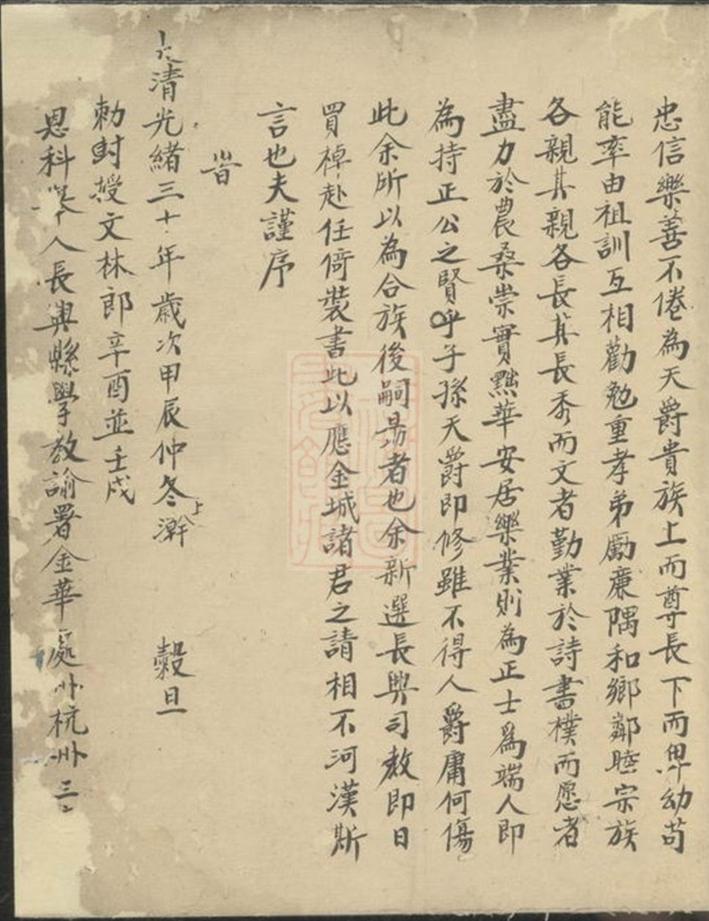 忠信樂善不倦為天爵貴族上而尊長下而卑幼苟
能率由祖訓互相勸勉重孝弟勵廉隅和鄉鄰睦宗族
各親其親各長其長秀而文者勤業於詩書樸而愿者
盡力於農桑崇實黜華安居樂業則為正士為端人即
為持正公之賢乎子孫天爵即修雖不得人爵庸何傷
此余所以為合族後嗣勗者也余新選長興司教即日
買棹赴任倚裝書此以應金城諸君之請相不河漢斯
言也夫謹序
旹
大清光緒三十年歲次甲辰仲冬上澣 穀旦
勅封授文林郎辛酉並壬戌
恩科舉人長興縣學教諭署金華處州杭州三